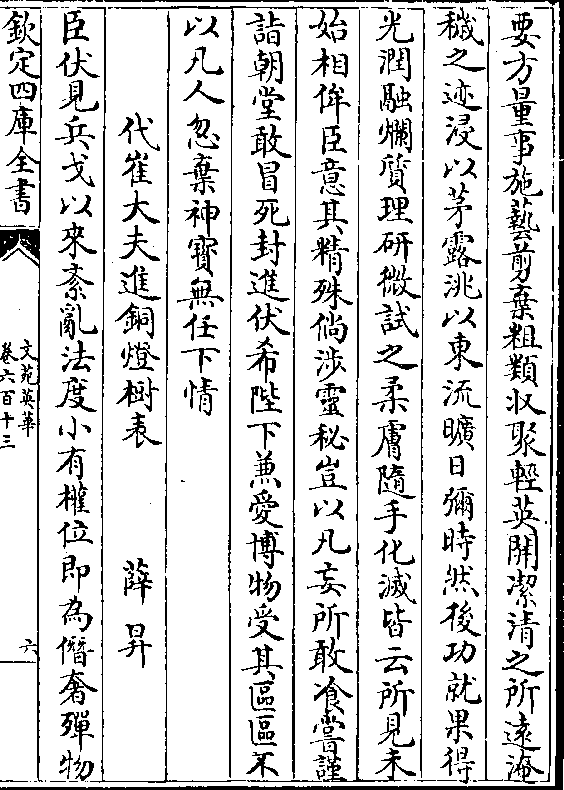 要方量事施藝剪棄粗類收聚輕英開潔清之所遠淹
穢之迹浸以茅露洮以東流曠日彌時然後功就果得
光潤融爛質理研微試之柔膚隨手化滅皆云所見未
始相侔臣意其精殊倘涉靈秘豈以凡妄所敢飡嘗謹
詣朝堂敢冒死封進伏希陛下兼愛博物受其區區不
以凡人忽棄神寳無任下情
代崔大夫進銅燈樹表 薛昇
臣伏見兵戈以來紊亂法度小有權位即為僭奢殫物
欽定四庫全書
文苑英華
卷六百十三
六